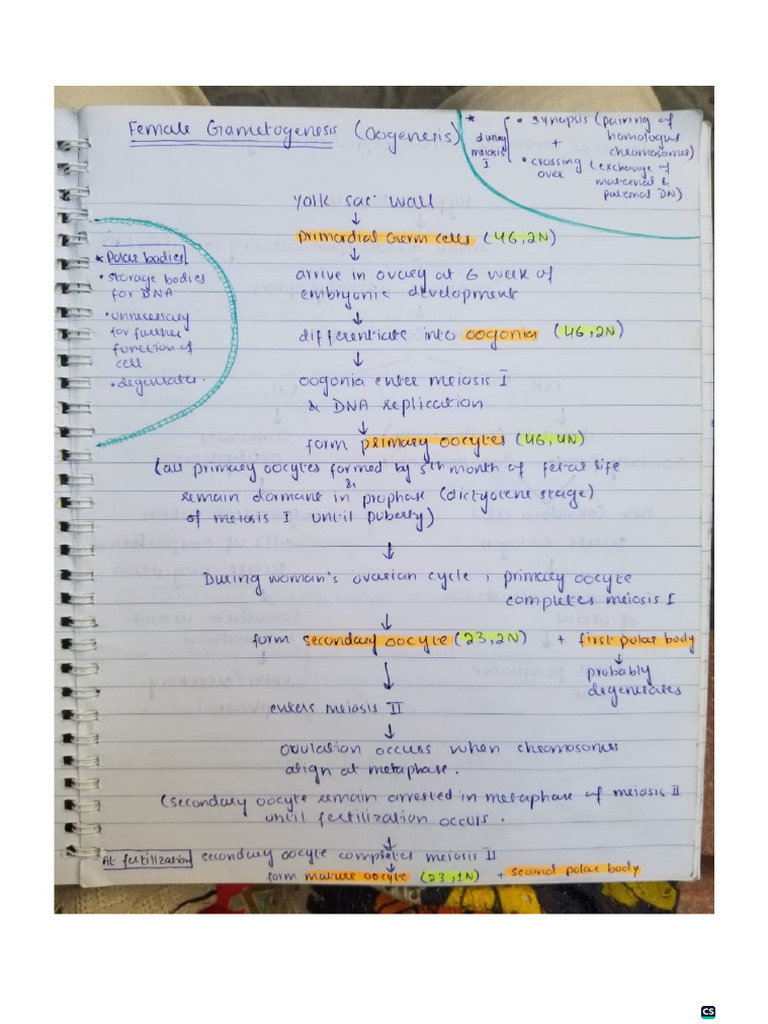 Female Gametogenesis (Oogenesis)
* during meiosis I
• synapsis (pairing of
homologus
+
chromosomes)
• crossing (exchange of
over maternal &
paternal DN)
yolk sac wall
↓
primordial Germ cells (46,2N)
↓
arrive in ovary at 6 week of
embryonic development
↓
differentiate into oogonia (46,2N)
↓
oogonia enter meiosis I
& DNA replication
↓
form primary oocytes (46,4N)
(all primary oocytes formed by 5th month of fetal life
&
remain dormant in prophase (dictyotene stage)
of meiosis I until puberty)
↓
* Polar bodies
• storage bodies
for DNA
• unnecessary
for further
function of
cell
• degenerates.
During woman's ovarian cycle, primary oocyte
completes meiosis I
↓
form secondary oocyte (23,2N) + first polar body
↓
probably
degenerates
↓
enters meiosis II
↓
ovulation occurs when chromosomes
align at metaphase.
(secondary oocyte remain arrested in metaphase of meiosis II
until fertilization occurs.
↓
At fertilization secondary oocyte completes meiosis II
↓
form mature oocyte (23,1N) + second polar body
CS